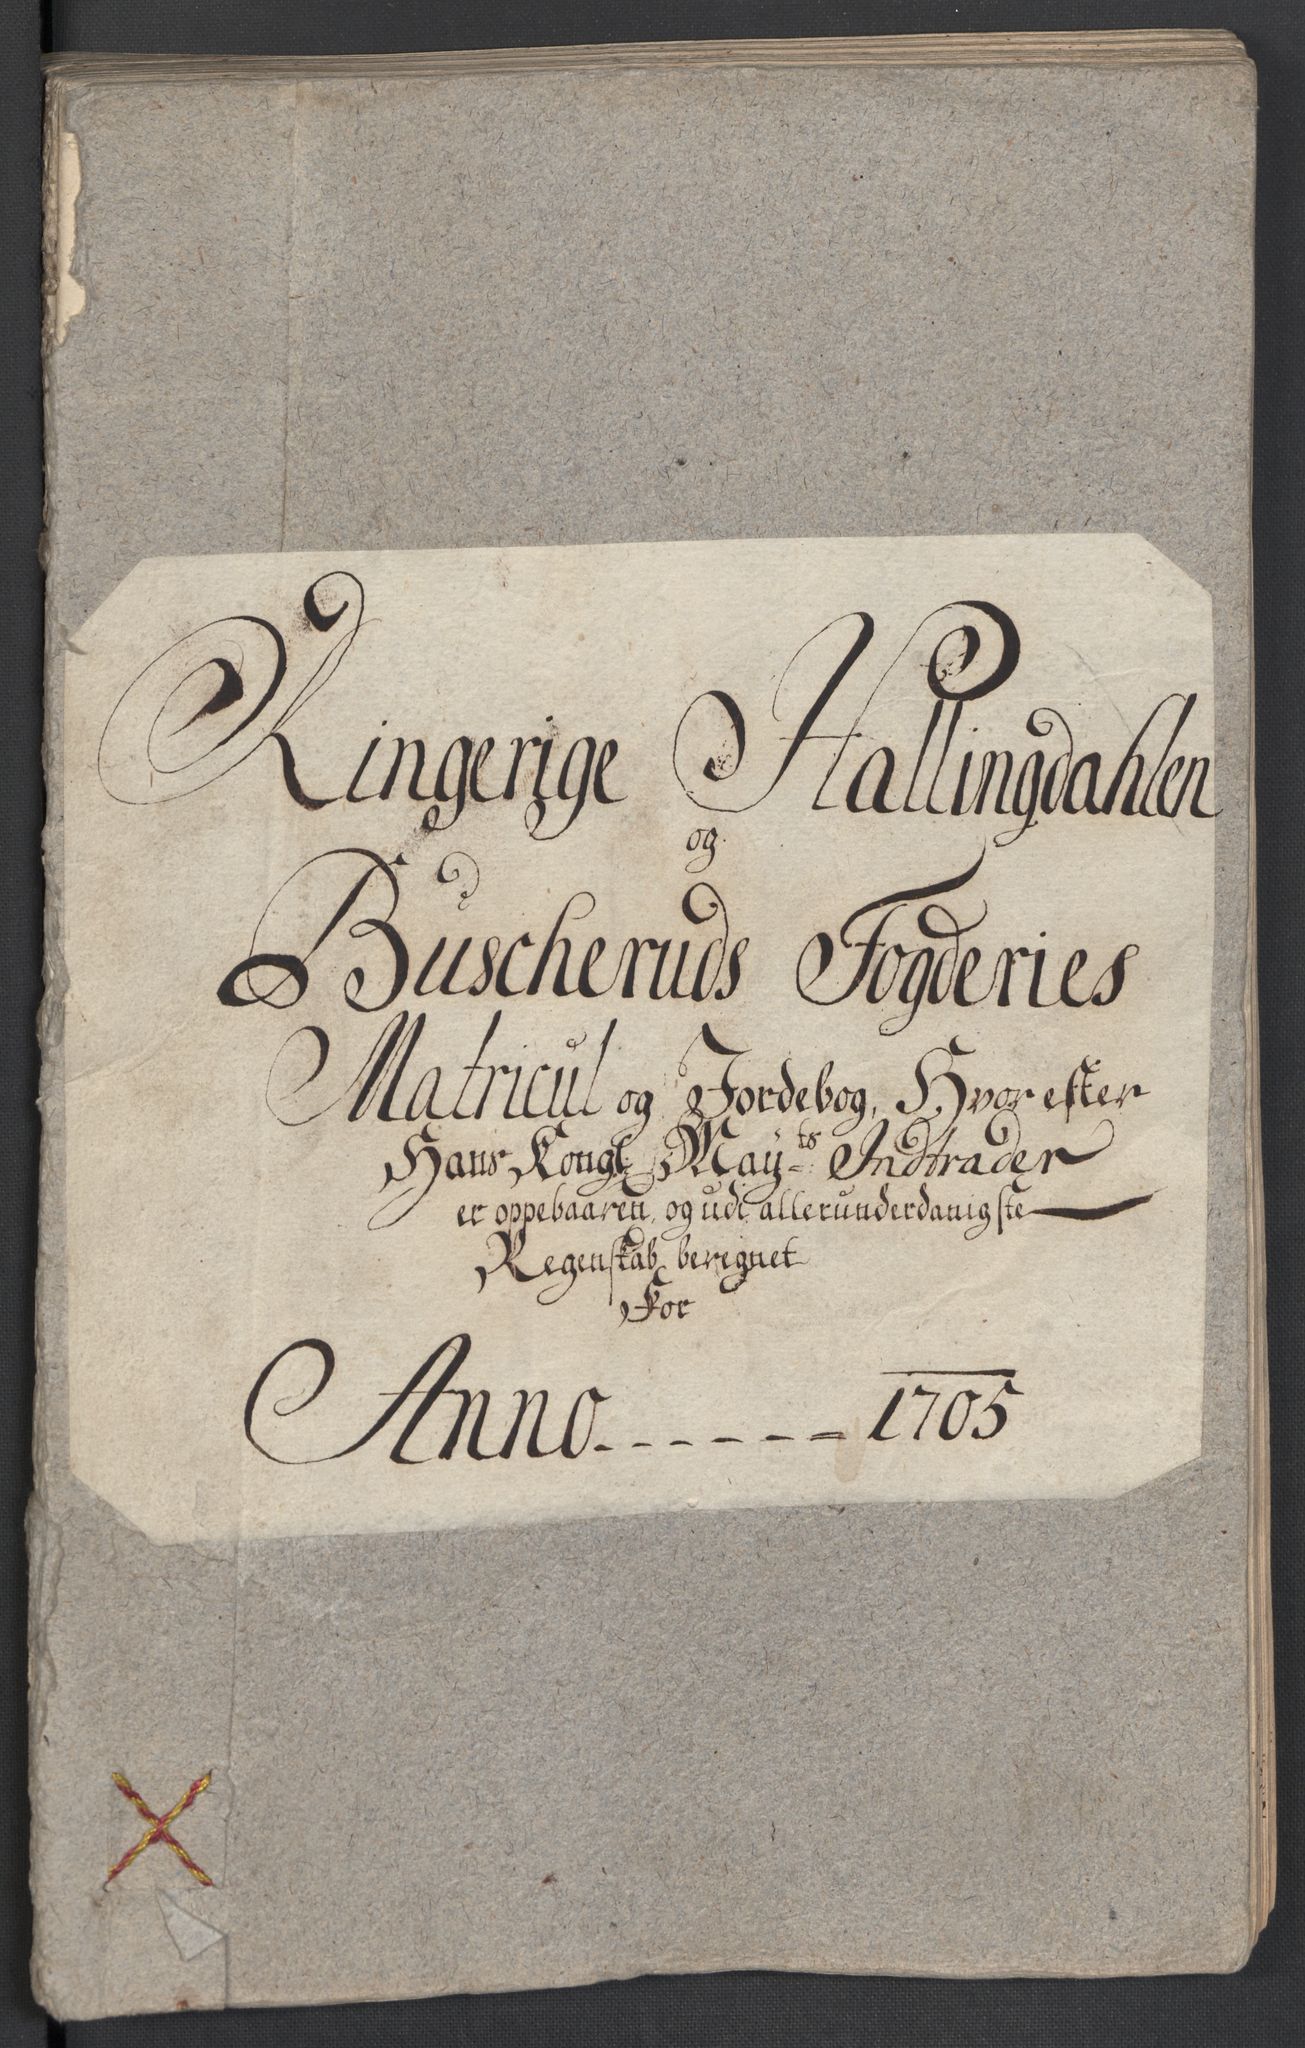 Ringerige Hallingdahlen
og
Buscheruds Fogderies
Matricul og Jordebog, Hvorefter
Hans Kongl: May:ts Indtrader
er oppebaaren, og udi allerunderdanigste
Regenskab beregnet
For
Anno. - - - - - = 1705